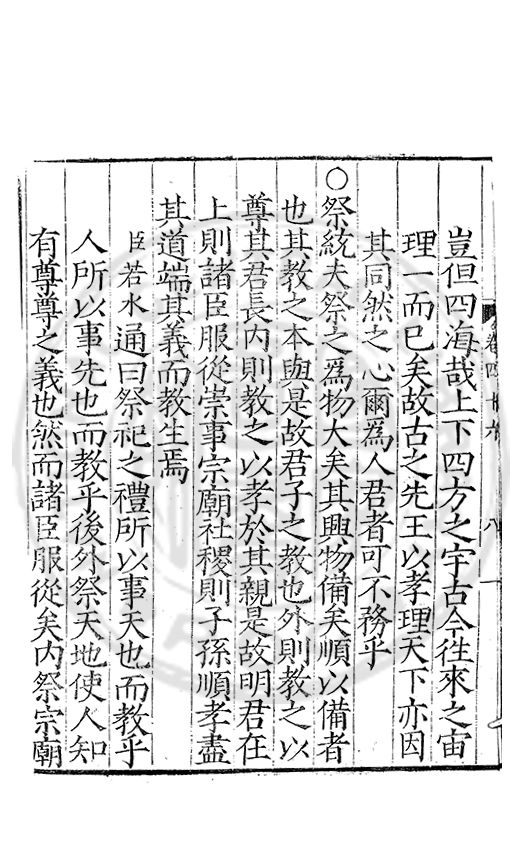 卷四十六 八
豈但四海哉上下四方之宇古今往來之宙
理一而已矣故古之先王以孝理天下亦因
其同然之心爾為人君者可不務乎
○祭統夫祭之為物大矣其興物備矣順以備者
也其教之本與是故君子之教也外則教之以
尊其君長内則教之以孝於其親是故明君在
上則諸臣服從崇事宗廟社稷則子孫順孝盡
其道端其義而教生焉
臣若水通曰祭祀之禮所以事天也而教乎
人所以事先也而教乎後外祭天地使人知
有尊尊之義也然而諸臣服從矣内祭宗廟